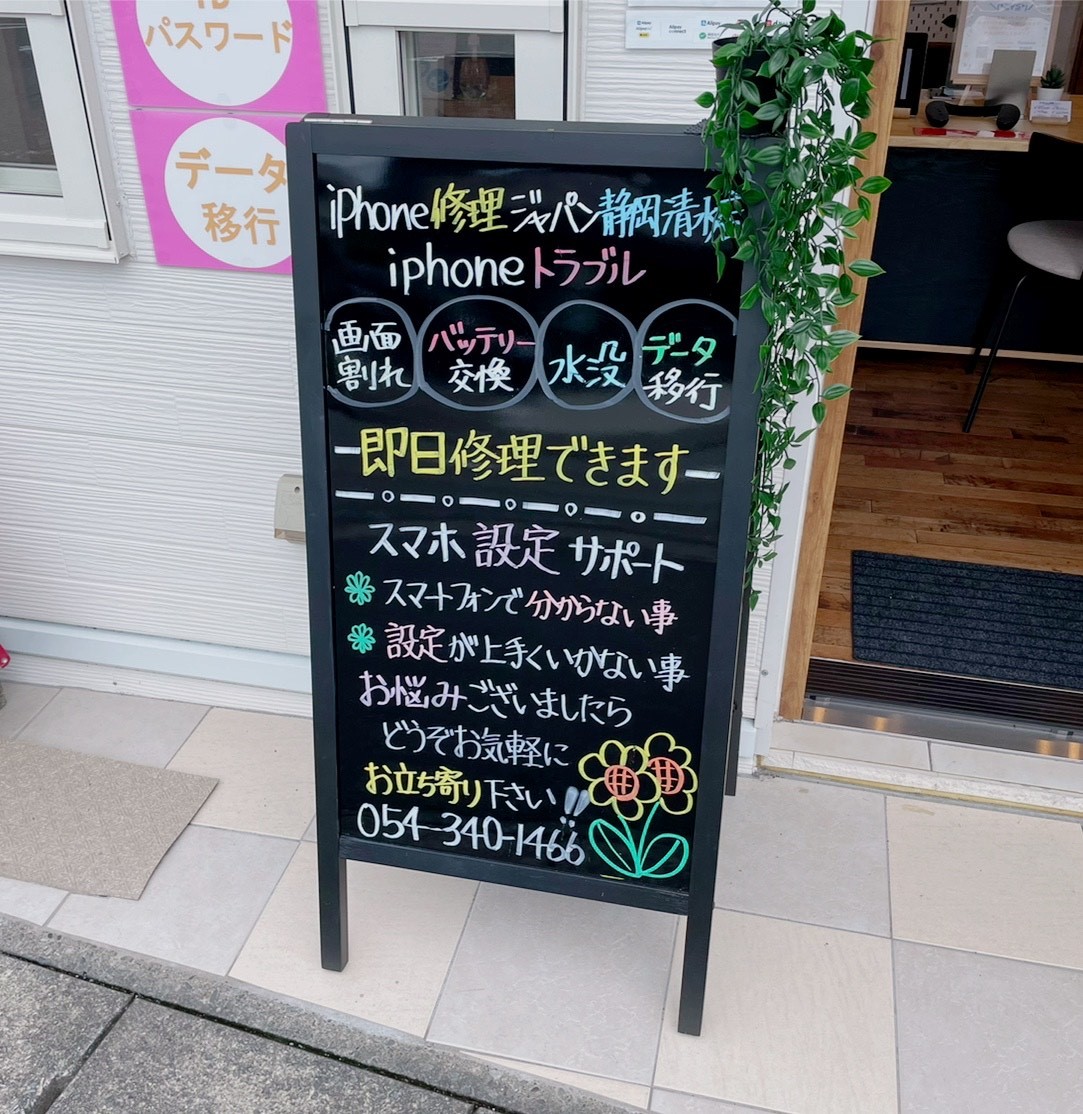 パスワード
データ
移行
iPhone修理ジャパン静岡清水
iphoneトラブル
画面
割れ
バッテリー
交換
水没
データ
移行
即日修理できます
スマホ設定サポート
スマートフォンで分からない事
設定が上手くいかない事
お悩みございましたら
どうぞお気軽に
お立ち寄り下さい!!
054-340-1466